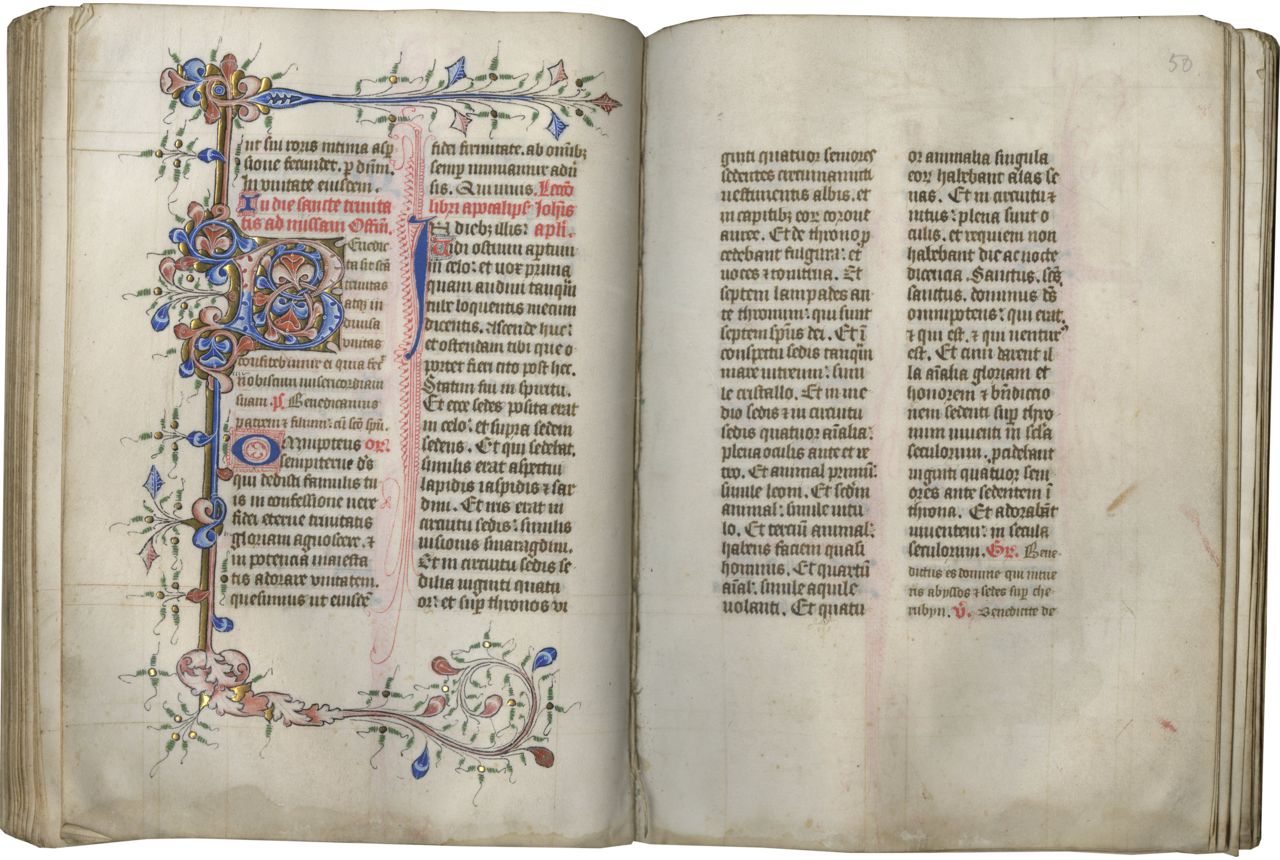 ut sui roris intima asp
sione fecundet. p dnm.
In unitate eiusdem.
In die sancte trinita
tis ad missam Offm.
Benedic
ta sit sca
trinitas
atq in
diuisa
unitas
confitebimur ei quia fec
nobiscum misericordiam
suam. ps. Benedicamus
patrem & filium cu sco spu.
Omnipotens or.
sempiterne ds
qui dedisti famulis tu
is in confessione uere
fidei eterne trinitatis
gloriam agnoscere. &
in potencia maiesta
tis adorare unitatem.
quesumus ut eiusde
fidei firmitate. ab omib;
semp muniamur aduer
sis. Qui uiuis. Lecco
libri apocalips Johis
In dieb; illis: apli.
Uidi ostium aptum
in celo: et uox prima
quam audiui tanqm
tube loquentis mecum
dicentis. Ascende huc:
et ostendam tibi que o
portet fieri cito post hec.
Statim fui in spiritu.
Et ecce sedes posita erat
in celo: et supra sedem
sedens. Et qui sedebat.
similis erat aspectui
lapidis iaspidis & sar
dini. Et iris erat in
circuitu sedis: similis
uisionis smaragdini.
Et in circuitu sedis se
dilia uiginti quatu
or: et sup thronos ui
50
ginti quatuor seniores
sedentes circumamicti
uestimentis albis. et
in capitib; eor corone
auree. Et de throno p
cedebant fulgura: et
uoces & tonitrua. Et
septem lampades an
te thronum: qui sunt
septem spus dei. Et i
conspectu sedis tanqm
mare uitreum: simi
le cristallo. Et in me
dio sedis & in circuitu
sedis quatuor aialia:
plena oculis ante et re
tro. Et animal primu:
simile leoni. Et scdm
animal: simile uitu
lo. Et terciu animal:
habens faciem quasi
hominis. Et quartu
aial: simile aquile
uolanti. Et quatu
or animalia singula
eor habebant alas se
nas. Et in circuitu &
intus: plena sunt o
culis. et requiem non
habebant die ac nocte
dicencia. Sanctus. scs.
sanctus. dominus ds
omnipotens: qui erat.
& qui est. & qui uentur
est. Et cum darent il
la aialia gloriam et
honorem & bndictio
nem sedenti sup thro
num uiuenti in scla
seculorum. pcidebant
uiginti quatuor seni
ores ante sedentem i
throno. Et adorabat
uiuentem: in secula
seculorum. Gr. Bene
dictus es domine qui intue
ris abyssos & sedes sup che
rubyn. V. Benedicite de